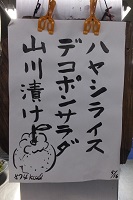 ハヤシライス
デコポンサラダ
山川漬け
874kcal